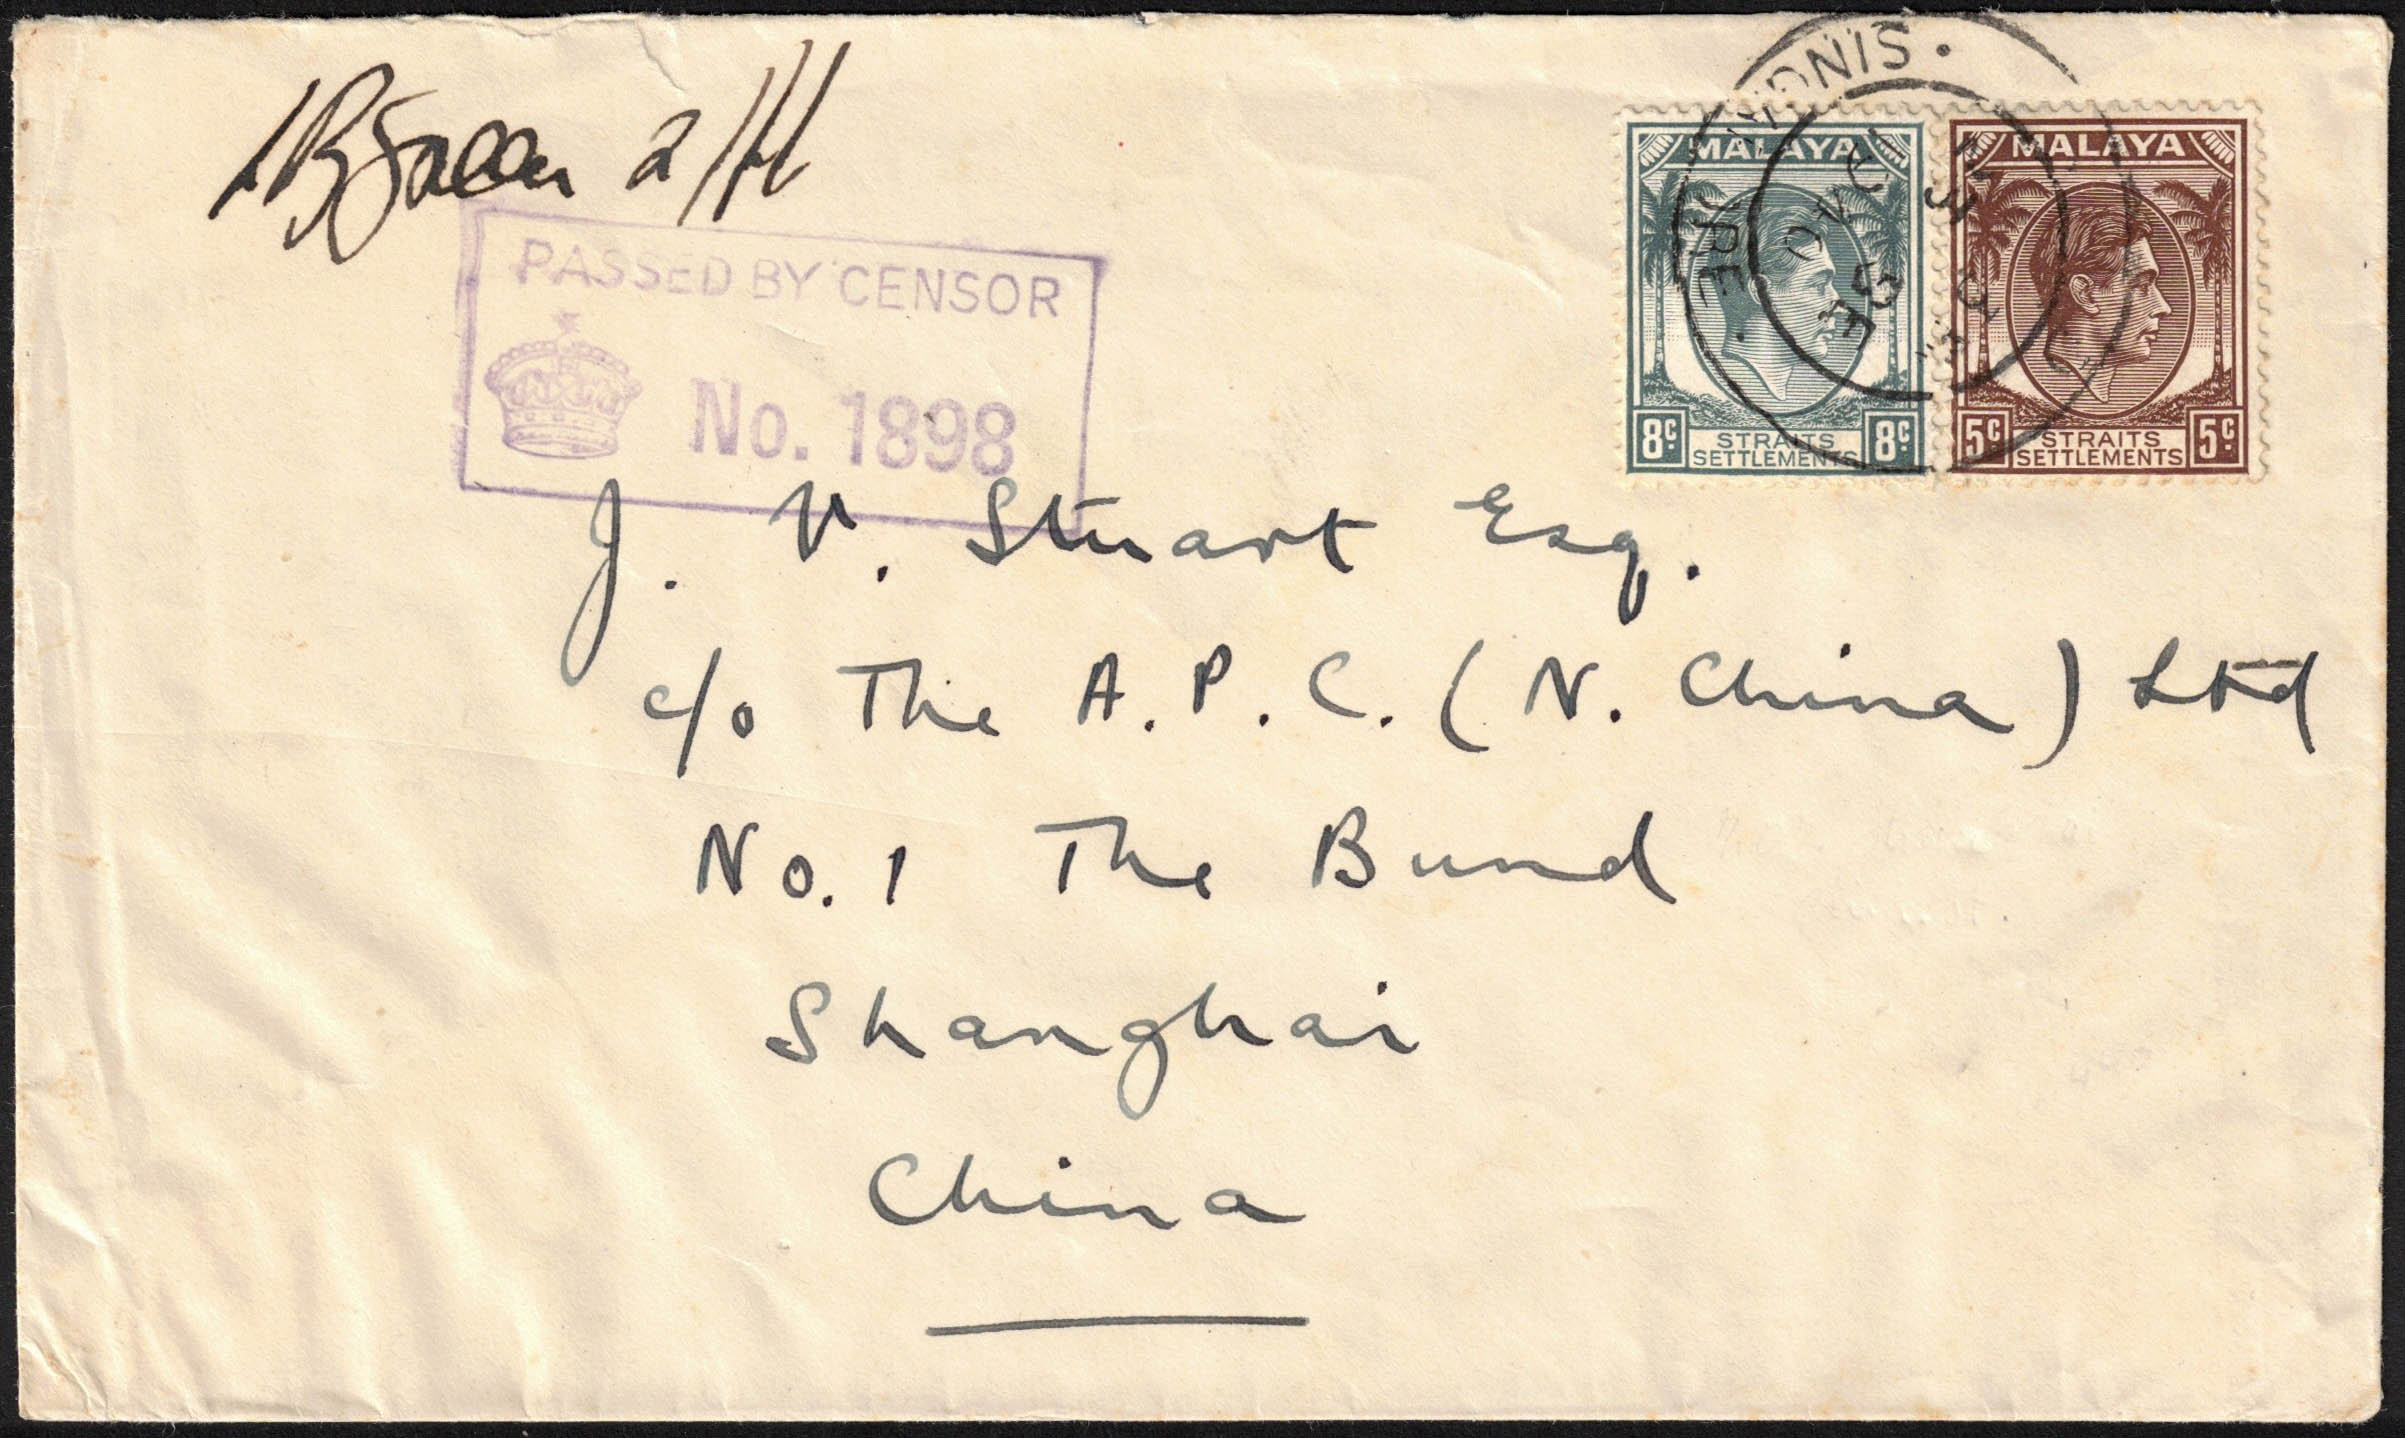 PASSED BY CENSOR
No. 1898
MALAYA
8c. 8c.
STRAITS
SETTLEMENTS
MALAYA
5c 5c.
STRAITS
SETTLEMENTS
J. V. Stuart Esq.
c/o The A. P. C. (N. China) Ltd
No. 1 The Bund
Shanghai
China